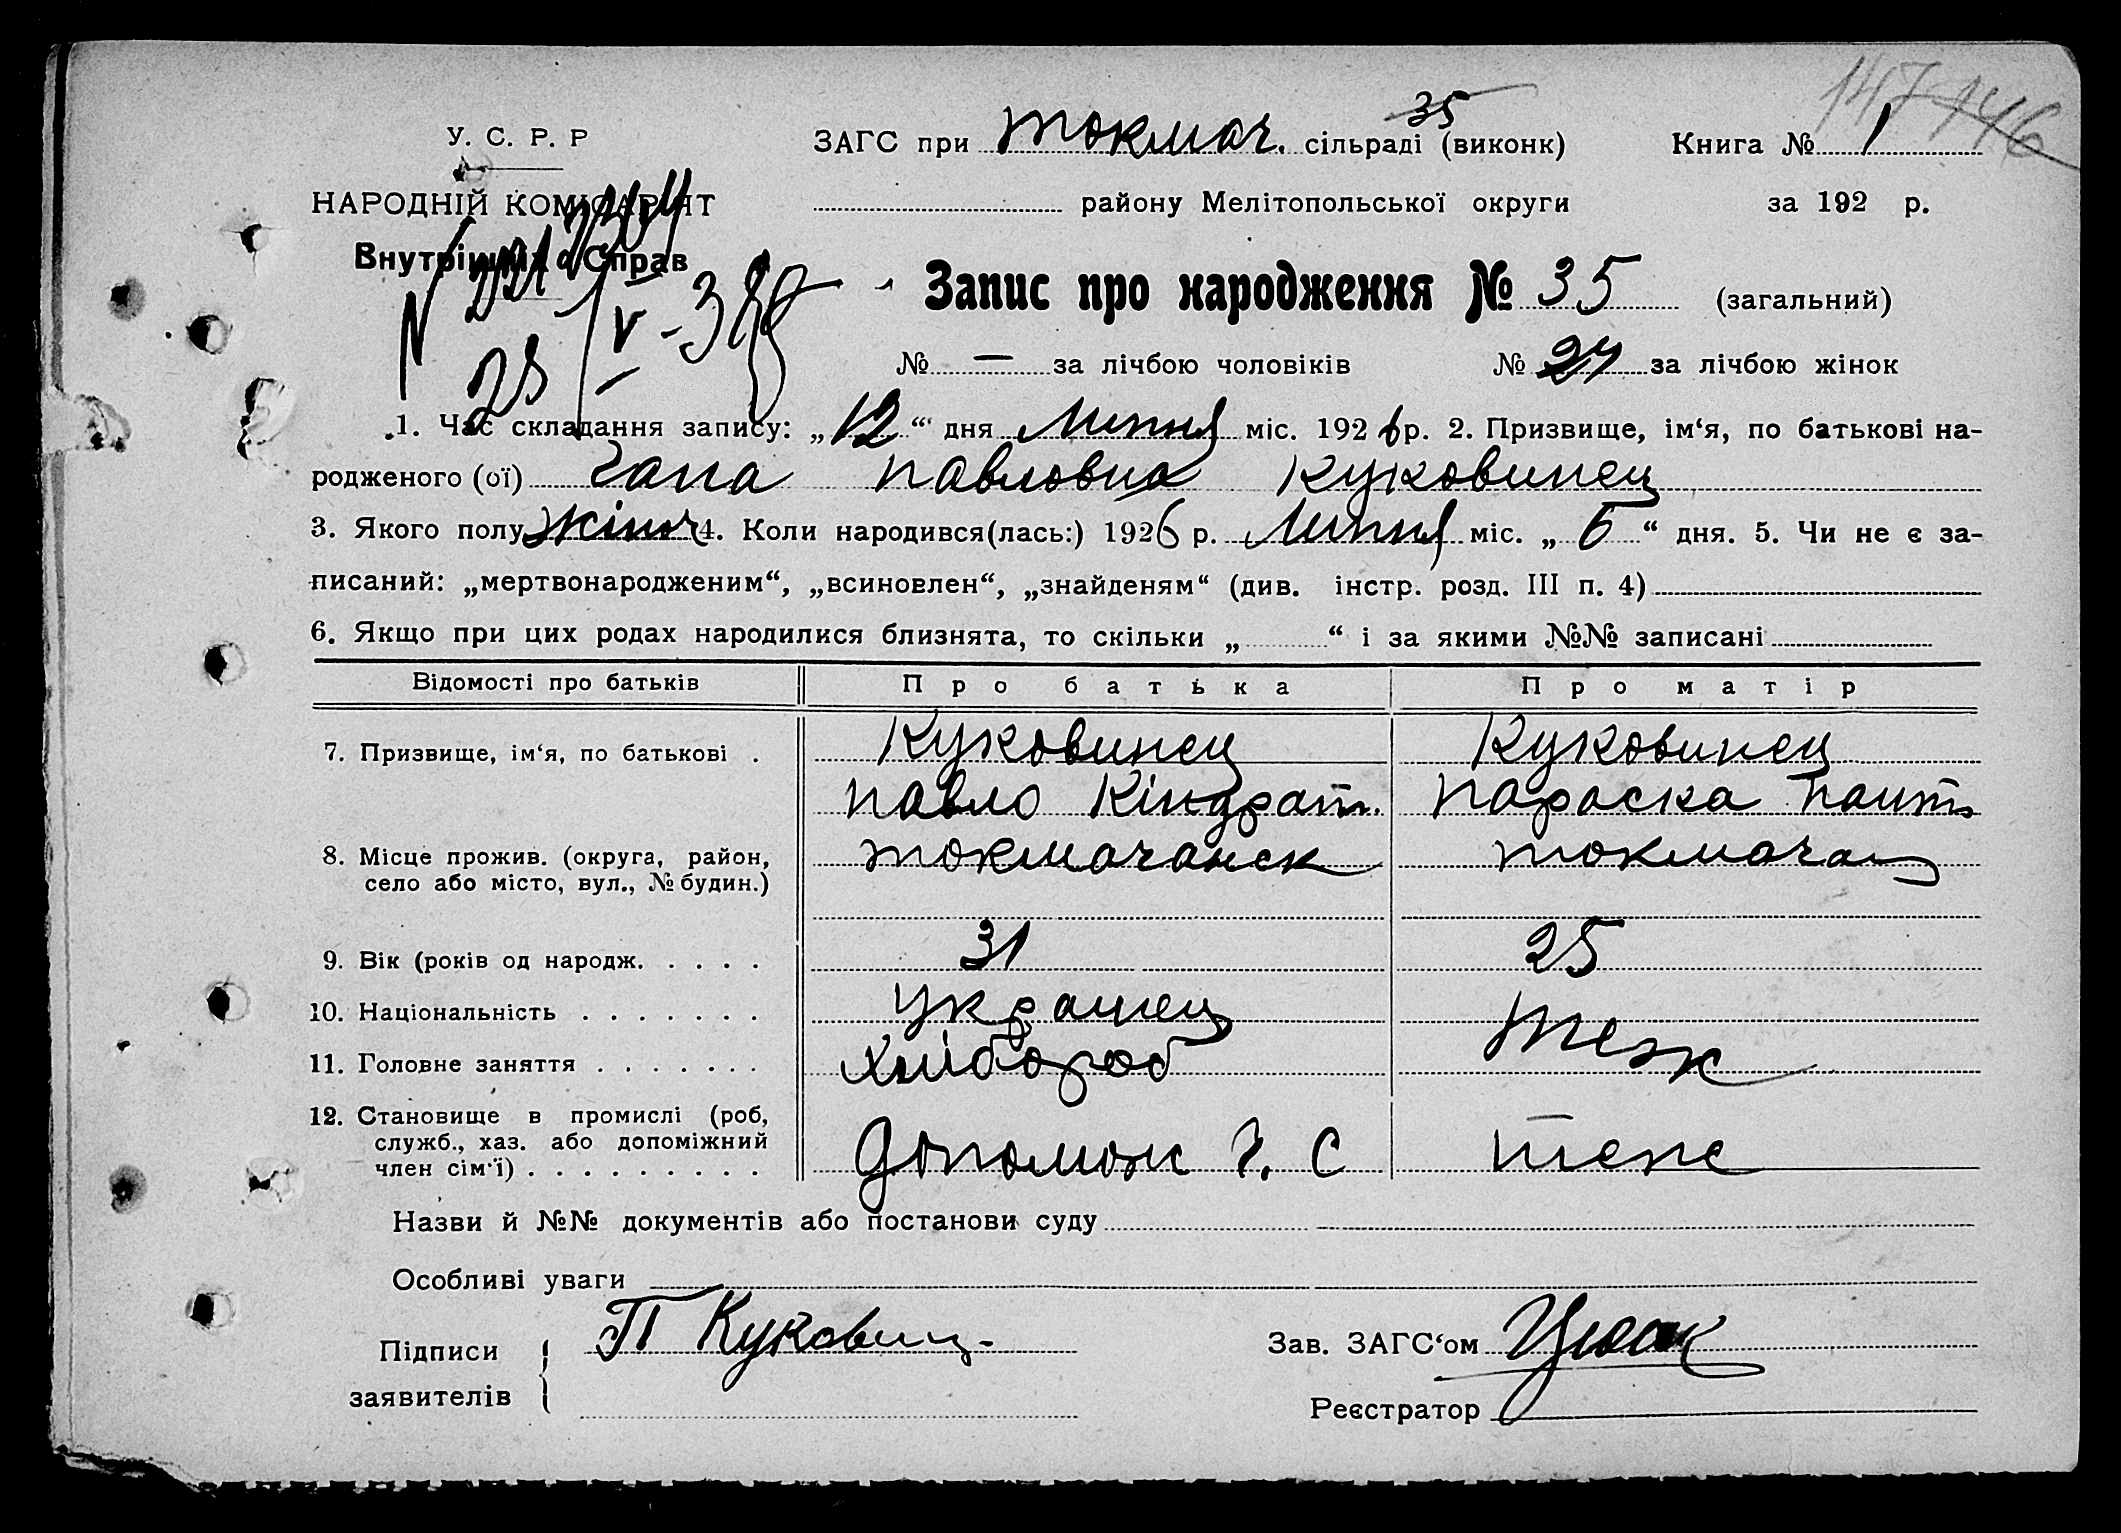 147 146
У. С. Р. Р
ЗАГС при Токмач. сільраді (виконк) 35
Книга № 1
НАРОДНІЙ КОМІСАРІЯТ
району Мелітопольської округи
за 192 р.
Внутрішніх Справ
Запис про народження № 35 (загальний)
№ — за лічбою чоловіків № 27 за лічбою жінок
1. Час складання запису: „12“ дня Липня міс. 1926 р. 2. Призвище, ім‘я, по батькові на-
родженого (ої) Гапа Павловна Куковинец
3. Якого полу жіноч 4. Коли народився(лась:) 1926 р. Липня міс. „5“ дня. 5. Чи не є за-
писаний: „мертвонародженим“, „всиновлен“, „знайденям“ (див. інстр. розд. III п. 4)
6. Якщо при цих родах народилися близнята, то скільки „ “ і за якими №№ записані
Відомості про батьків Про батька Про матір
7. Призвище, ім‘я, по батькові . Куковинец Куковинец
Павло Кіндрат. Параска
8. Місце прожив. (округа, район, Токмачанск Токмачан
село або місто, вул., № будин.)
9. Вік (років од народж. . . . . 31 25
10. Національність . . . . . . . Українец Теж
11. Головне заняття . . . . . . . Хлібороб
12. Становище в промислі (роб,
служб., хаз. або допоміжний
член сім‘ї) . . . . . . . . . Допомож Ч. С теж
Назви й №№ документів або постанови суду
Особливі уваги
Підписи П Куковинц- Зав. ЗАГС‘ом
заявителів Реєстратор